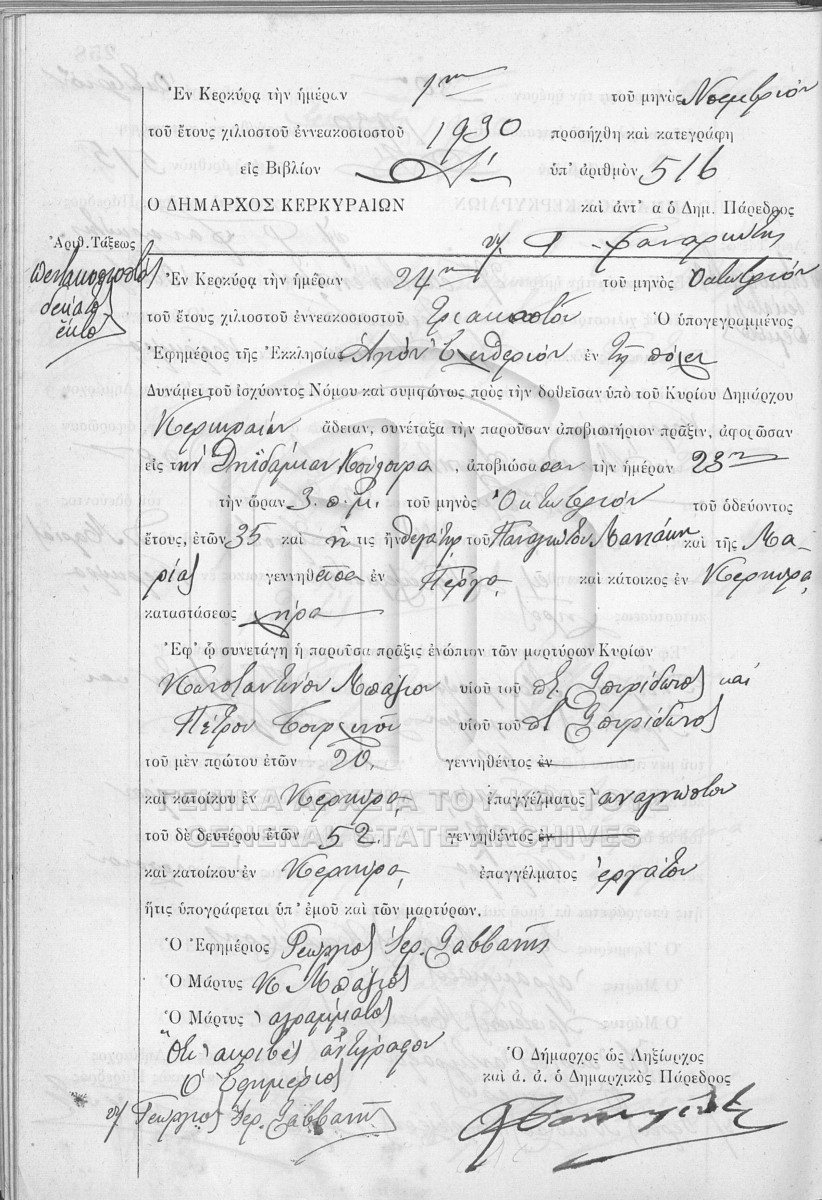 Ἐν Κερκύρᾳ τὴν ἡμέραν 1ην τοῦ μηνὸς Νοεμβρίου
τοῦ ἔτους χιλιοστοῦ ἐννεακοσιοστοῦ 1930 προσήχθη καὶ κατεγράφη
εἰς Βιβλίον Α' ὑπ' ἀριθμὸν 516
Ο ΔΗΜΑΡΧΟΣ ΚΕΡΚΥΡΑΙΩΝ καὶ ἀντ' α ὁ Δημ. Πάρεδρος
Ἀριθ. Τάξεως
πεντακοσιοστὸς
δέκατος
ἕκτος
Ἐν Κερκύρᾳ τὴν ἡμέραν 24ην τοῦ μηνὸς Ὀκτωβρίου
τοῦ ἔτους χιλιοστοῦ ἐννεακοσιοστοῦ τριακοστοῦ Ὁ ὑπογεγραμμένος
Ἐφημέριος τῆς Ἐκκλησίας Ἁγίου Ἐλευθερίου ἐν τῇ πόλει
Δυνάμει τοῦ ἰσχύοντος Νόμου καὶ συμφώνως πρὸς τὴν δοθεῖσαν ὑπὸ τοῦ Κυρίου Δημάρχου
Κερκυραίων ἄδειαν, συνέταξα τὴν παροῦσαν ἀποβιωτήριον πρᾶξιν, ἀφορῶσαν
εἰς τὴν , ἀποβιώσασαν τὴν ἡμέραν 23ην
τὴν ὥραν 3 π.μ. τοῦ μηνὸς Ὀκτωβρίου τοῦ ὁδεύοντος
ἔτους, ἐτῶν 35 καὶ ἥτις ἦν θυγάτηρ τοῦ Παναγιώτου Μανιάκη καὶ τῆς Μα-
ρίας γεννηθεῖσα ἐν Πέργᾳ καὶ κάτοικος ἐν Κερκύρᾳ,
καταστάσεως χήρα
Ἐφ' ᾧ συνετάγη ἡ παροῦσα πρᾶξις ἐνώπιον τῶν μαρτύρων Κυρίων
Κωνσταντίνου υἱοῦ τοῦ Σπυρίδωνος καὶ
Πέτρου υἱοῦ τοῦ Σπυρίδωνος
τοῦ μὲν πρώτου ἐτῶν 20, γεννηθέντος ἐν
καὶ κατοίκου ἐν Κερκύρᾳ ἐπαγγέλματος ἀναγνώστου
ΓΕΝΙΚΑ ΑΡΧΕΙΑ ΤΟΥ ΚΡΑΤΟΥΣ
τοῦ δὲ δευτέρου ἐτῶν 52 γεννηθέντος ἐν
GENERAL STATE ARCHIVES
καὶ κατοίκου ἐν Κερκύρᾳ, ἐπαγγέλματος ἐργάτου
ἥτις ὑπογράφεται ὑπ' ἐμοῦ καὶ τῶν μαρτύρων.
Ὁ Ἐφημέριος Γεώργιος Ἱερ. Σαββανῆς
Ὁ Μάρτυς Κ
Ὁ Μάρτυς ἀγράμματος
Ὅτι ἀκριβὲς ἀντίγραφον
Ὁ Ἐφημέριος
Γεώργιος Ἱερ. Σαββανῆς
Ὁ Δήμαρχος ὡς Ληξίαρχος
καὶ ἀ. ἀ. ὁ Δημαρχικὸς Πάρεδρος